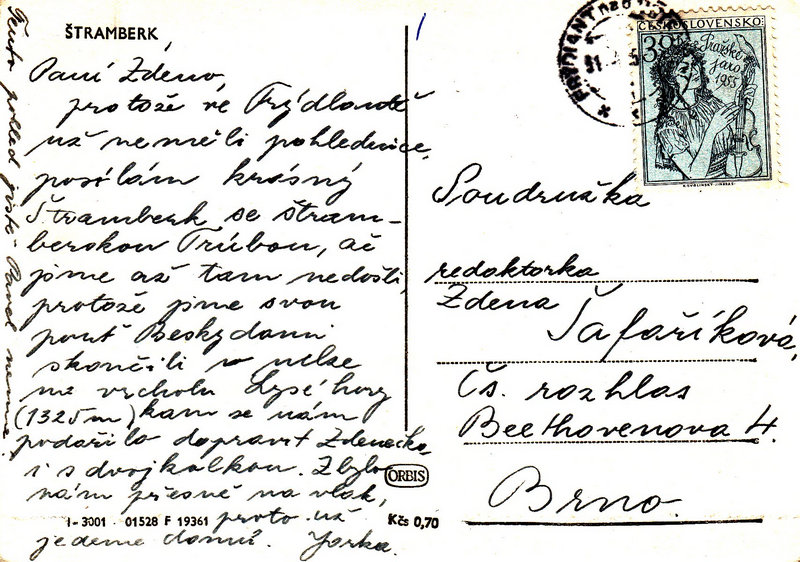 ŠTRAMBERK
Paní Zdeno,
protože ve Frýdlandě
už neměli pohlednice,
posílám krásný
Štramberk se štram-
berskou Trúbou, ač
jsme až tam nedošli,
protože jsme svou
pouť Beskydami
skončili v mlze
na vrcholu Lysé hory
(1325m) kam se nám
podařilo dopravit Zdenečka
i s dvojkolkou. Zbylo
nám přesně na vlak,
proto už
jedeme domů. Jorka.
Tento pohled ještě Pavel nemá.
ORBIS
I-3001 · 01528 F 19361
Kčs 0,70
ČESKOSLOVENSKO
30h
Pražské
jaro
1955
Soudružka
redaktorka
Zdena
Šafaříková,
Čs. rozhlas
Beethovenova 4.
Brno.